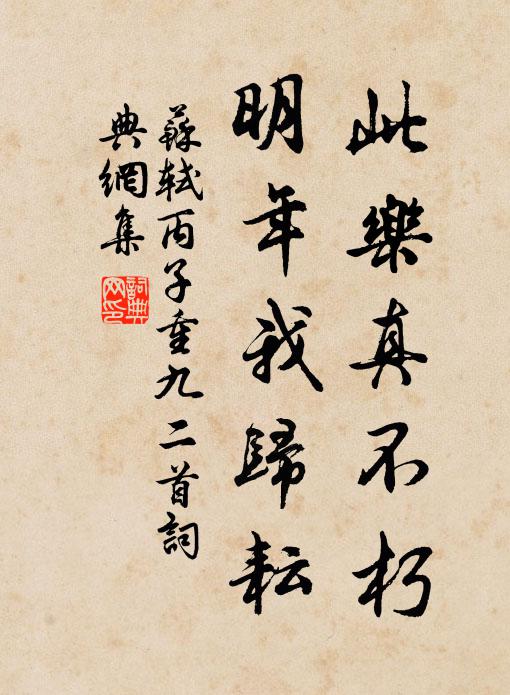 此樂真不朽
明年我歸耘
蘇軾丙子重九二首詞
典網集
詞典
网印